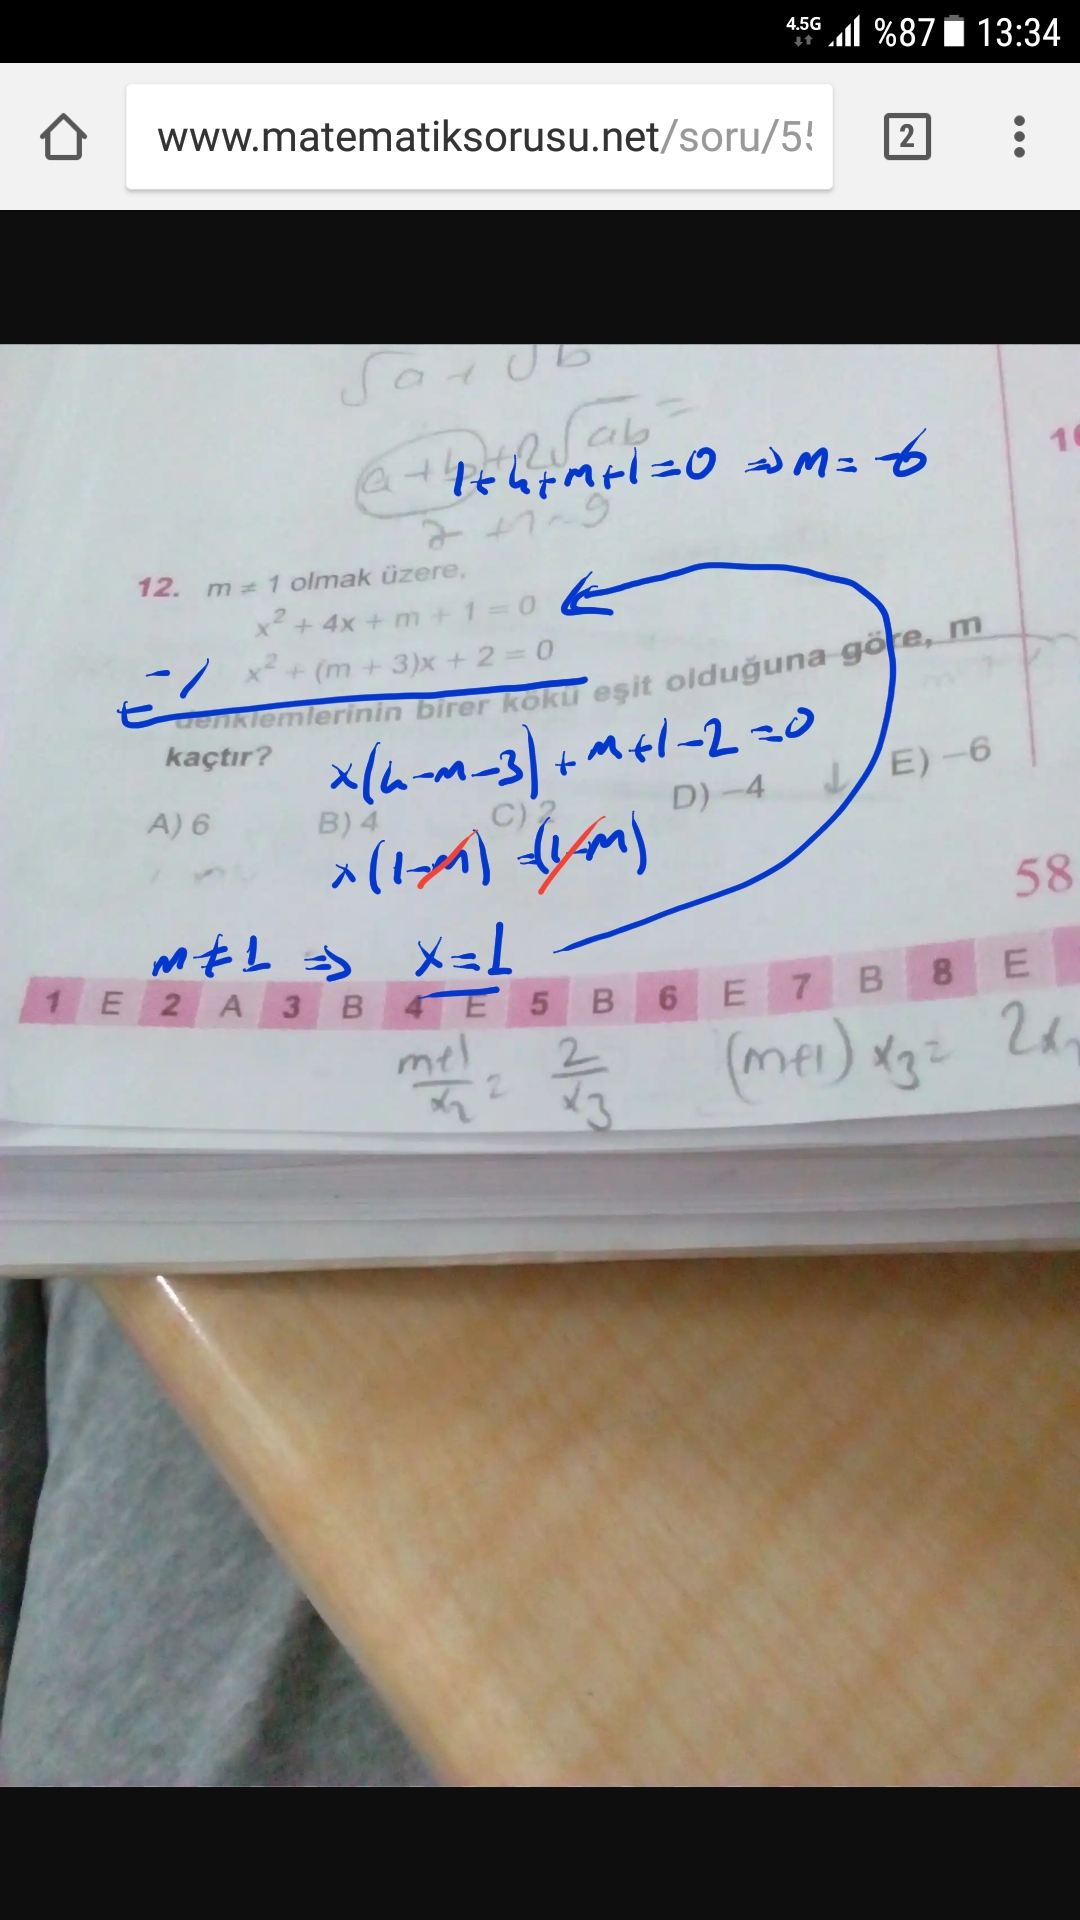 4.5G %87 13:34
www.matematiksorusu.net/soru/5
2
√a + √b
a+b+2√ab =
1+4+m+1=0 ⇒ m = -6
12. m ≠ 1 olmak üzere,
x² + 4x + m + 1 = 0
-1 x² + (m + 3)x + 2 = 0
denklemlerinin birer kökü eşit olduğuna göre, m
kaçtır?
x(4-m-3)+m+1-2=0
A) 6 B) 4 C) 2 D) -4 E) -6
x(1-m) =(1-m)
58
m≠1 ⇒ x=1
1 E 2 A 3 B 4 E 5 B 6 E 7 B 8 E
m+1/x₂ = 2/x₃ (m+1) x₃ = 2x